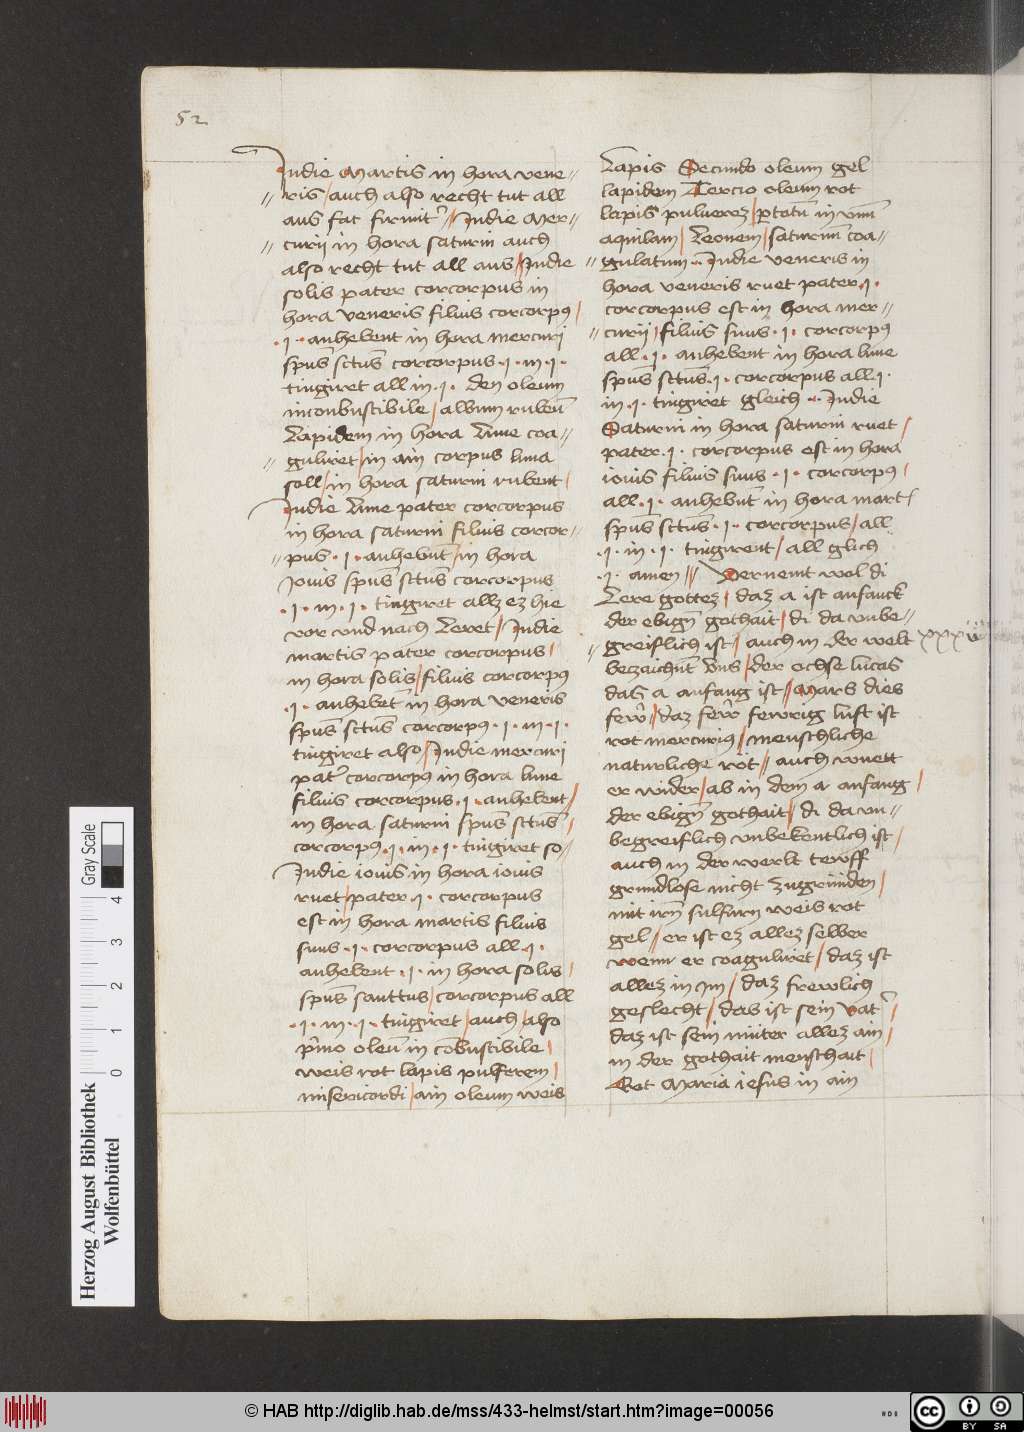 52
Indie Martis in hora vene=
ris / auch also recht tut all
aus fac firmit᷑ // Indie Mer=
curij in hora saturni auch
also recht tut all aus / Indie
solis pater corcorpus in
hora veneris filius corcorpꝰ /
· 1 · anhebent in hora mercurj
spūs sctūs corcorpus · 1 · in · 1 ·
tingiret all in · 1 · den oleum
inconbustibile / album rubeū
Lapidem in hora Lune coa=
guliret / in ain corpus luna
soll / in hora saturni rubent /
Indie Lune pater corcorpus
in hora saturni filius corcor=
pus · 1 · anhebūt / in hora
Jouis spūs sctūs corcorpus
· 1 · in · 1 · tingiret allz ez hie
vor vnd nach Leret / Indie
martis pater corcorpus /
in hora solis / filius corcorpꝰ
· 1 · anhebēt in hora veneris
spūs sctūs corcorpꝰ · 1 · in · 1 ·
tingiret also / Indie mercurj
pat᷑ corcorpꝰ in hora lune
filius corcorpus · 1 · anhebent /
in hora saturni spūs sctūs /
corcorpꝰ · 1 · in · 1 · tingiret so /
Indie iouis in hora iouis
ruet / pater · 1 · corcorpus
est in hora martis filius
suus · 1 · corcorpus all · 1 ·
anhebent · 1 · in hora solis /
spūs santtus / corcorpus all
· 1 · in · 1 · tingiret / auch / also
p᷑mo oleū in cōbustibile /
weis rot lapis pulferem /
misericordi / ain oleum weis
Lapis Secundo oleum gel
lapidem Tercio oleum rot
lapis puluerez / ꝑtotū in vnū
aquilam / Leonem / saturnū coa=
gulatum · Indie veneris in
hora veneris ruet pater · 1 ·
corcorpus est in hora mer=
curij / filius suus · 1 · corcorpꝰ
all · 1 · anhebent in hora lune
spūs sctūs · 1 · corcorpus all · 1 ·
in · 1 · tingiret gleich · Indie
Saturni in hora saturni ruet /
pater · 1 · corcorpus est in hora
iouis filius suus · 1 · corcorpꝰ /
all · 1 · anhebūt in hora mart
spūs sctūs · 1 · corcorpus / all
· 1 · in · 1 · tingirent / all glich
· 1 · amen // Vernemt wol di
Lere gottez / daz a ist anfanck
der ebign̄ gothait / di da vnbe=
greiflich ist / auch in der welt
bezaichnt vns / der ochse lucas
das a anfang ist // Mars dies
few᷑ / daz few᷑ fewrig luft ist
rot mercuriꝰ / menschliche
naturliche röt // auch vnett
er wider / ab in dem a anfang /
der ebign̄ gothait / di da vn=
begreiflich vnbekentlich ist /
auch in der werlt tewff
grundlose nicht zugründen /
mit irn̄ sulfurn weis rot
gel // er ist ez allez selber
wenn er coaguliret / daz ist
allez in im / daz frewlich
geslecht / das ist sein vat᷑ /
daz ist sein müter allez ain /
in der gothait menschait /
Got Maria iesus in ain
Herzog August Bibliothek
Wolfenbüttel
0 1 2 3 4
Gray Scale
© HAB http://diglib.hab.de/mss/433-helmst/start.htm?image=00056
cc BY SA